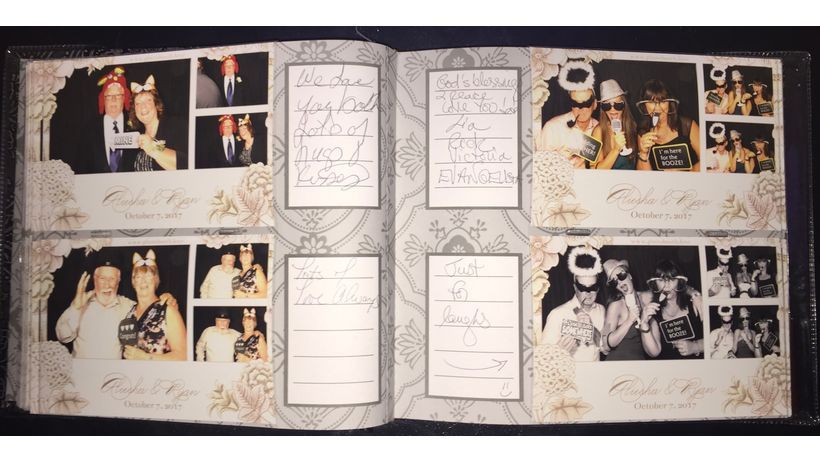 MINE
Alyisha & Ryan
October 7, 2017
We love
you both
Lots of
hugs &
kisses
God's blessing
& Peace
Love You
Rick
Victoria
I'm here
for the
BOOZE!
Ryan
October 7, 2017
Congrats!
& Ryan
October 7, 2017
Lots of
Love Always
Just
for
laughs
I'm here
for the
BOOZE!
& Ryan
October 7, 2017